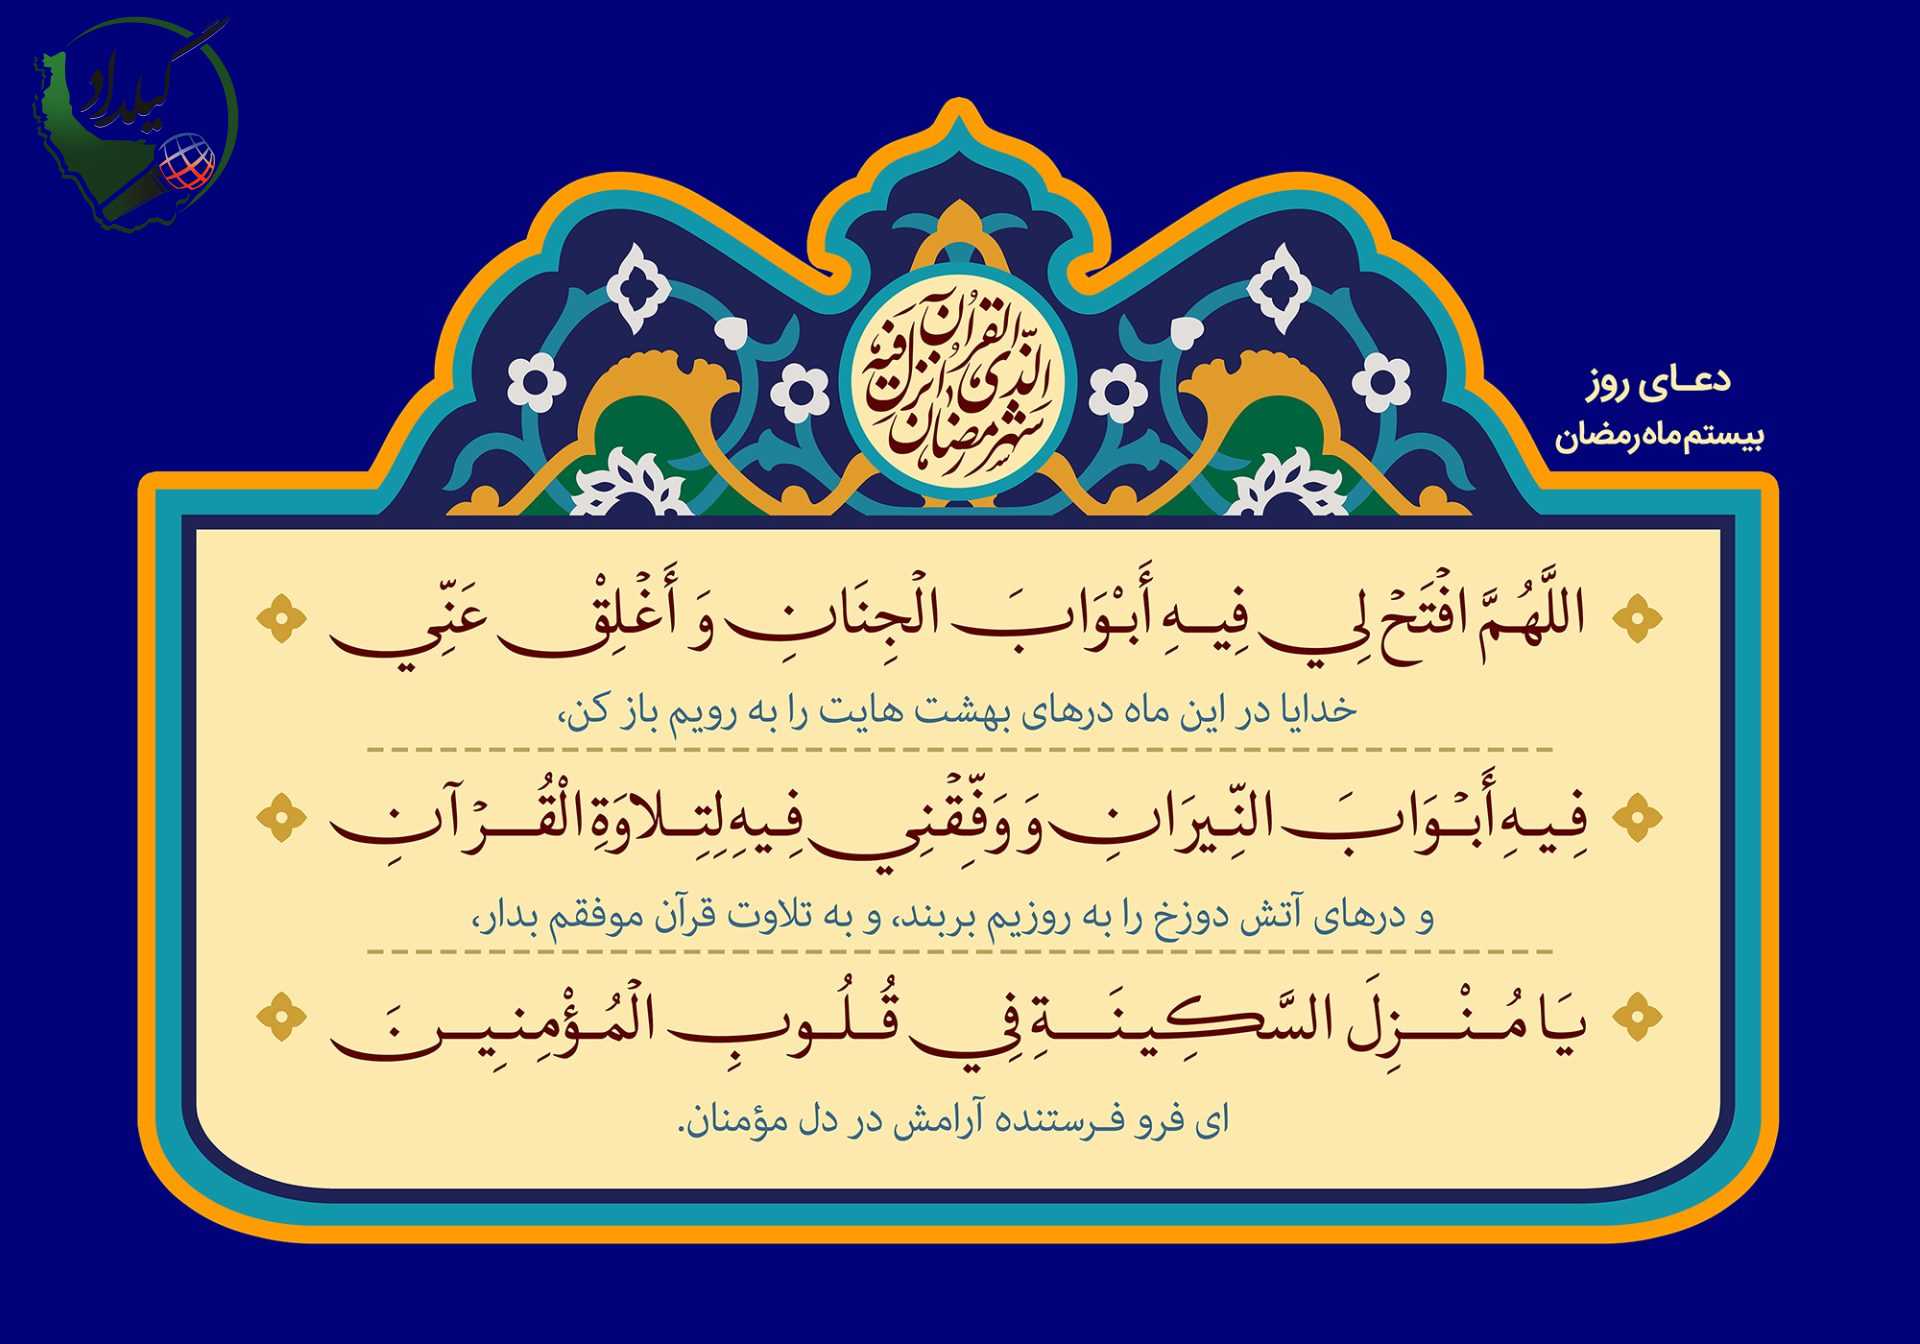 گیلداد
شهر رمضان الذی انزل فیه القرآن
دعای روز
بیستم ماه رمضان
اللَّهُمَّ افْتَحْ لِي فِيهِ أَبْوَابَ الْجِنَانِ وَ أَغْلِقْ عَنِّي
خدایا در این ماه درهای بهشت هایت را به رویم باز کن،
فِيهِ أَبْوَابَ النِّيرَانِ وَ وَفِّقْنِي فِيهِ لِتِلاوَةِ الْقُرْآنِ
و درهای آتش دوزخ را به روزیم بربند، و به تلاوت قرآن موفقم بدار،
يَا مُنْزِلَ السَّكِينَةِ فِي قُلُوبِ الْمُؤْمِنِينَ
ای فرو فرستنده آرامش در دل مؤمنان.